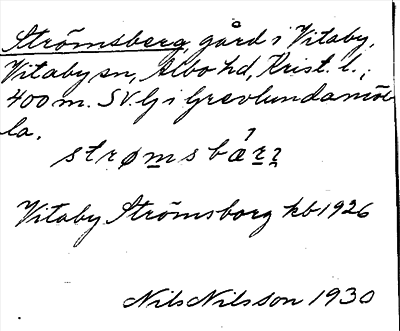 Strömsberg, gård i Vitaby,
Vitaby sn, Albo hd, Krist. l.;
400 m. SV lj i Grevlundamöl-
la.
strømsbær
Vitaby Strömsborg kb 1926
Nils Nilsson 1930